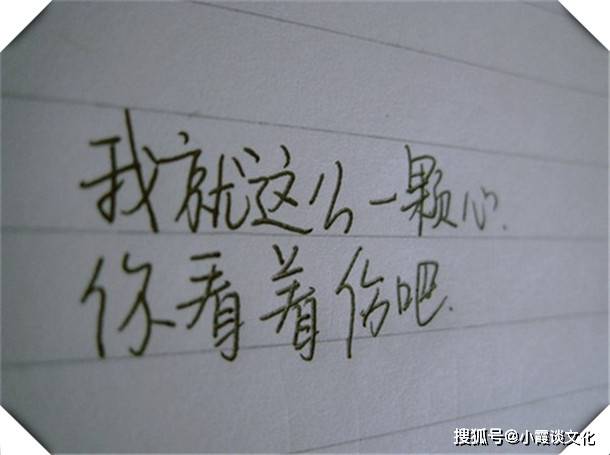 我就这么一颗心.
你看着伤吧.
搜狐号@小霞谈文化